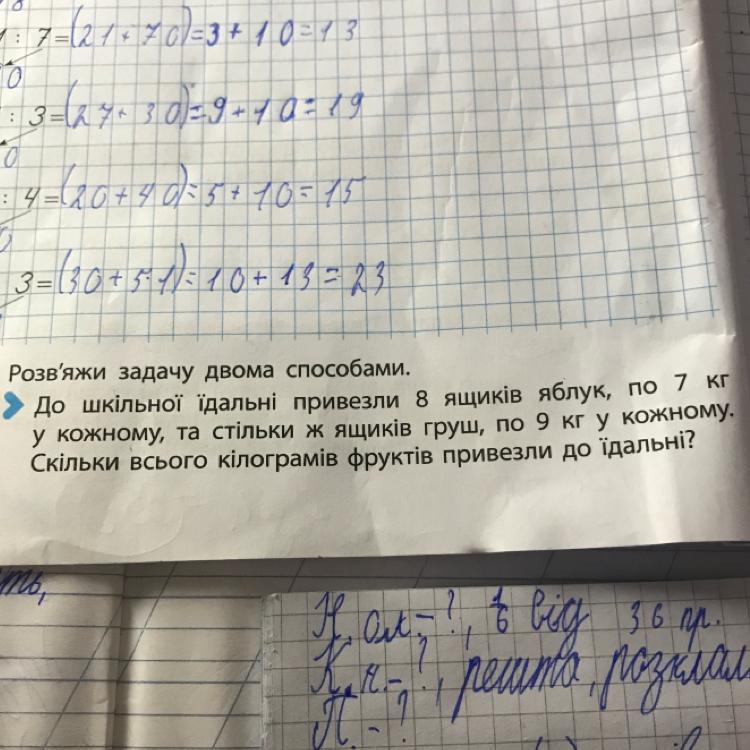 : 7=(21+70)=3+10=13
0
: 3=(27+30)=9+10=19
0
: 4=(20+40)=5+10=15
3=(30+51)=10+13=23
Розв'яжи задачу двома способами.
До шкільної їдальні привезли 8 ящиків яблук, по 7 кг
у кожному, та стільки ж ящиків груш, по 9 кг у кожному.
Скільки всього кілограмів фруктів привезли до їдальні?
Н. ол. - ?, 1/6 від 36 пр.
К. н. - ?, решта, розклал
П. - ?